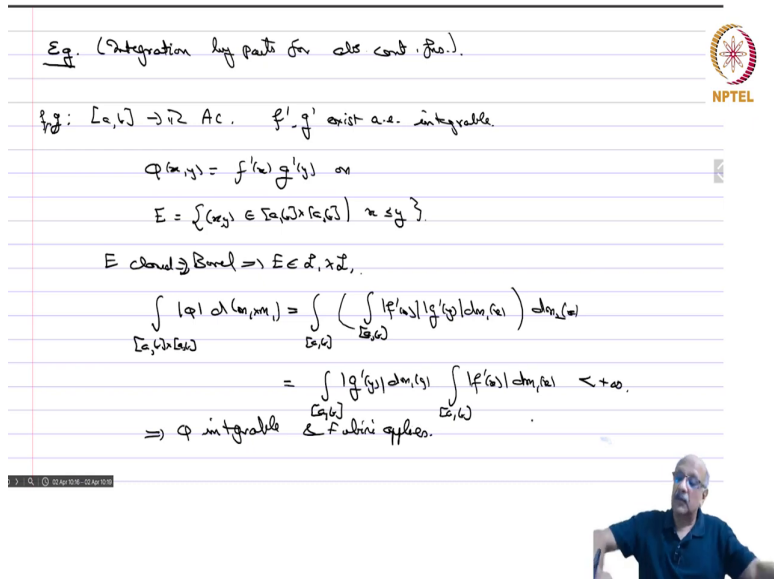 Eg. (Integration by parts for abs cont. fns.).
NPTEL
f,g: [a,b] → ℝ AC. f', g' exist a.e. integrable.
φ(x,y) = f'(x) g'(y) on
E = {(x,y) ∈ [a,b]×[a,b] | x ≤ y}.
E closed ⇒ Borel ⇒ E ∈ ℒ₁ × ℒ₁.
∫_{[a,b]×[a,b]} |φ| d(m₁×m₁) = ∫_{[a,b]} ( ∫_{[a,b]} |f'(x)| |g'(y)| dm₁(x) ) dm₁(x)
= ∫_{[a,b]} |g'(y)| dm₁(y) ∫_{[a,b]} |f'(x)| dm₁(x) < +∞.
⇒ φ integrable & Fubini applies.
02 Apr 10:16 - 02 Apr 10:19